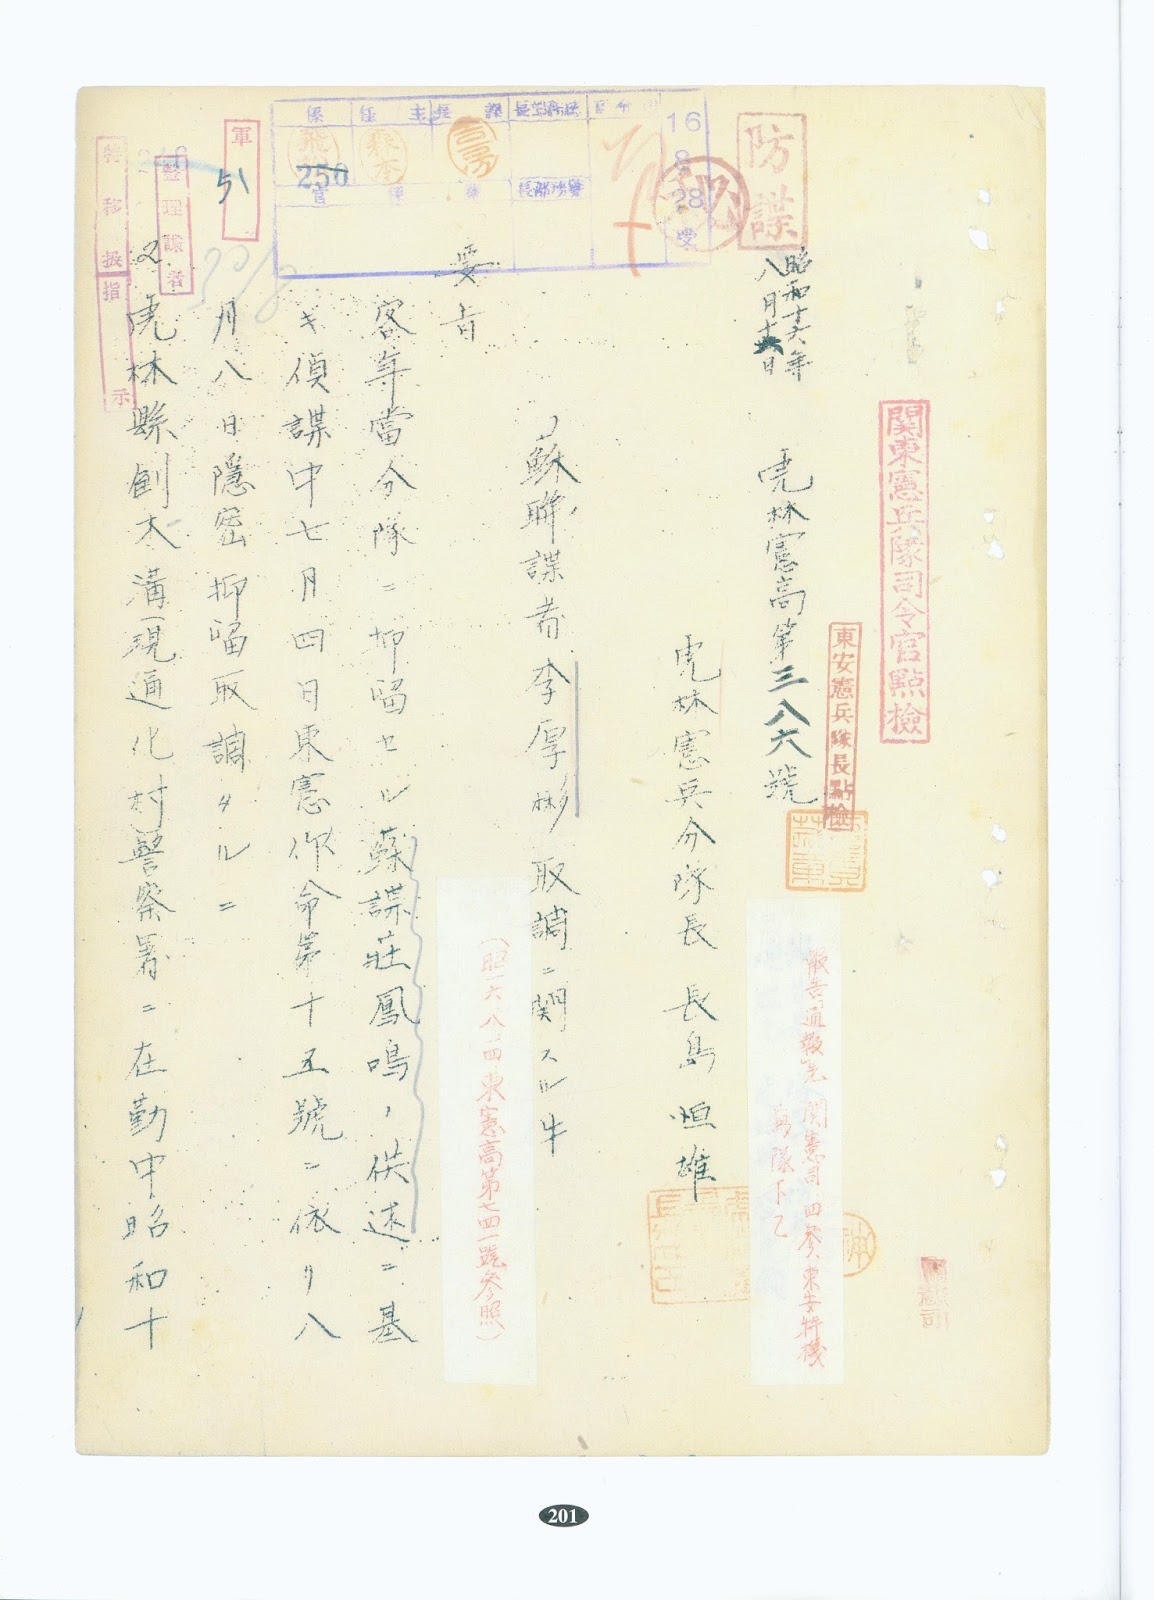 関東憲兵隊司令官點檢
東安憲兵隊長點檢
防諜
昭和十六年
八月十六日
虎林憲高第三八六號
報告「通報」先 関憲司 四參、東安特機
隊下乙
虎林憲兵分隊長 長島恒雄
蘇聯諜者李厚彬取調ニ関スル件
(昭一六、八、四東憲高第七四一號參照)
要旨
客年當分隊ニ抑留セル蘇諜莊鳳鳴ノ供述ニ基
キ偵諜中七月四日東憲作命第十五號ニ依リ八
月八日隱密抑留取調タルニ
虎林縣創木溝現通化村警察署ニ在勤中昭和十
16
8
28
受
課長
主任
係
森本
250
軍
51
整理諜者
特移扱指示
201